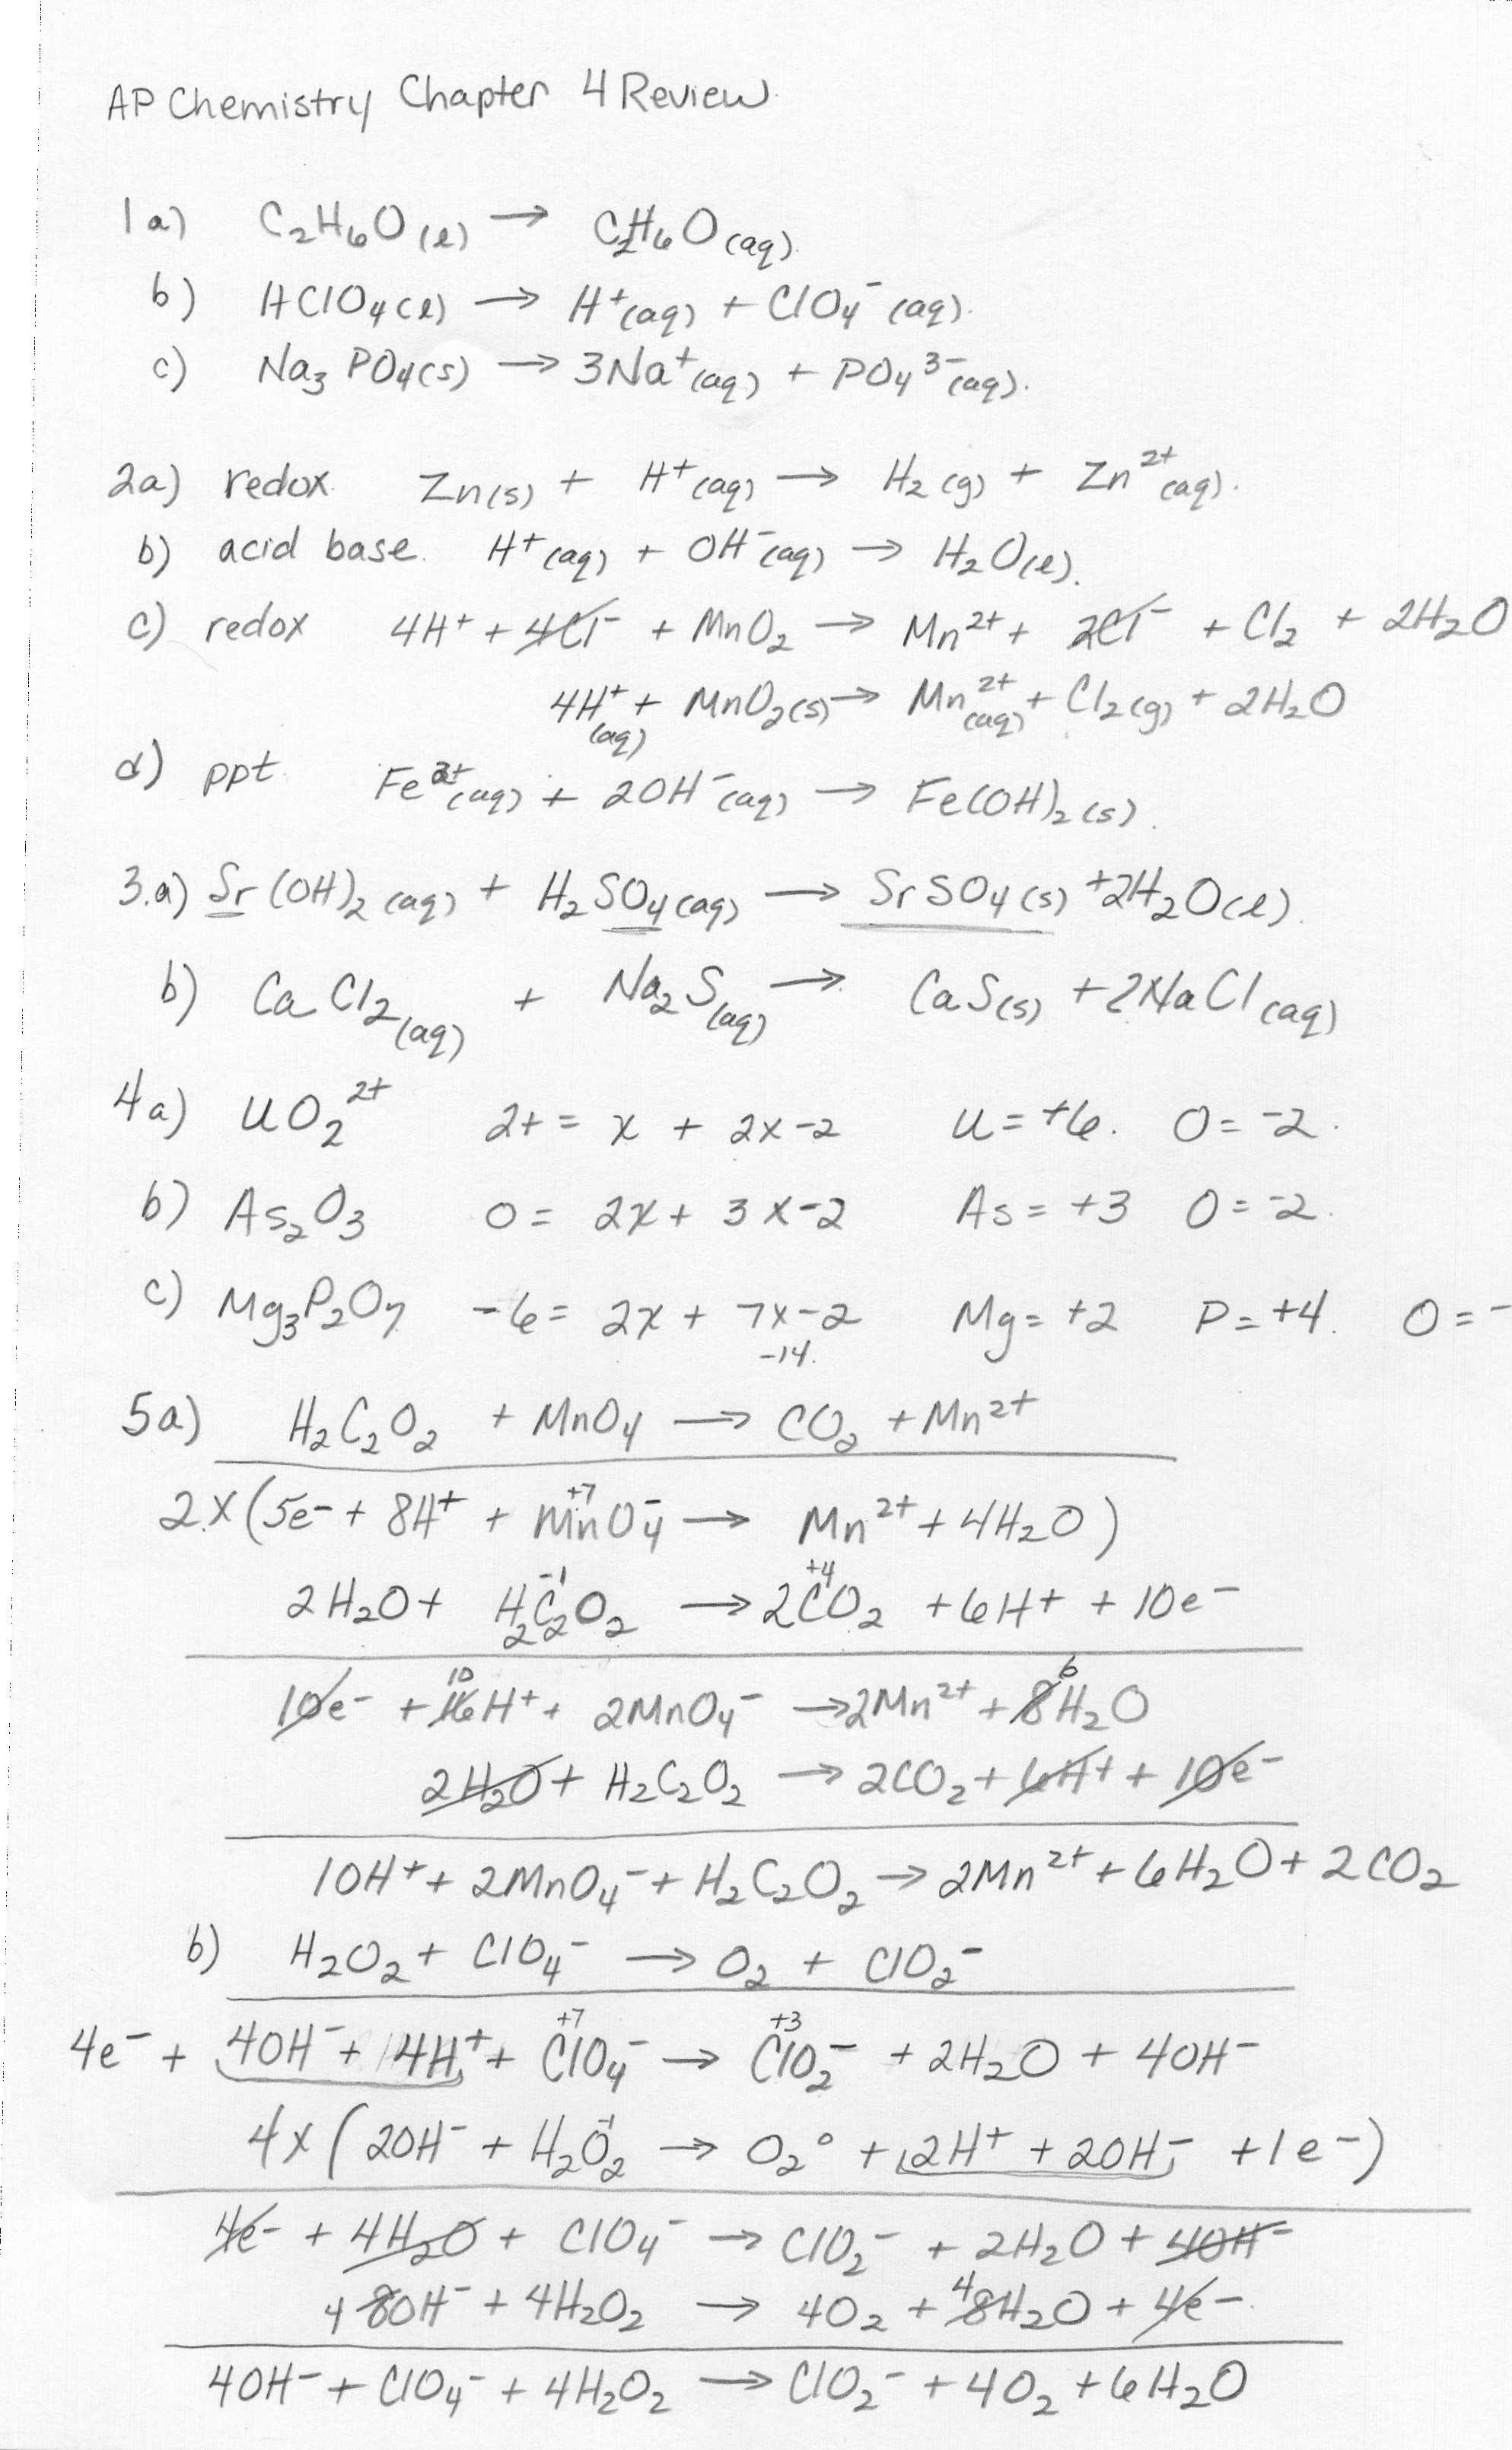 AP Chemistry Chapter 4 Review
1a) C₂H₆O(l) → C₂H₆O(aq).
b) HClO₄(l) → H⁺(aq) + ClO₄⁻(aq).
c) Na₃PO₄(s) → 3Na⁺(aq) + PO₄³⁻(aq).
2a) redox Zn(s) + H⁺(aq) → H₂(g) + Zn²⁺(aq).
b) acid base. H⁺(aq) + OH⁻(aq) → H₂O(l).
c) redox 4H⁺ + 4Cl⁻ + MnO₂ → Mn²⁺ + 2Cl⁻ + Cl₂ + 2H₂O
4H⁺(aq) + MnO₂(s) → Mn²⁺(aq) + Cl₂(g) + 2H₂O
d) ppt Fe²⁺(aq) + 2OH⁻(aq) → Fe(OH)₂(s).
3.a) Sr(OH)₂(aq) + H₂SO₄(aq) → SrSO₄(s) + 2H₂O(l).
b) CaCl₂(aq) + Na₂S(aq) → CaS(s) + 2NaCl(aq)
4a) UO₂²⁺ 2+ = x + 2x-2 U = +6. O = -2.
b) As₂O₃ 0 = 2x + 3x-2 As = +3 O = -2.
c) Mg₃P₂O₇ -6 = 2x + 7x-2 Mg = +2 P = +4. O = -
-14.
5a) H₂C₂O₂ + MnO₄ → CO₂ + Mn²⁺
+7
2x(5e⁻ + 8H⁺ + MnO₄⁻ → Mn²⁺ + 4H₂O)
-1 +4
2H₂O + H₂C₂O₂ → 2CO₂ + 6H⁺ + 10e⁻
10 6
10e⁻ + 16H⁺ + 2MnO₄⁻ → 2Mn²⁺ + 8H₂O
2H₂O + H₂C₂O₂ → 2CO₂ + 6H⁺ + 10e⁻
10H⁺ + 2MnO₄⁻ + H₂C₂O₂ → 2Mn²⁺ + 6H₂O + 2CO₂
b) H₂O₂ + ClO₄⁻ → O₂ + ClO₂⁻
+7 +3
4e⁻ + 4OH⁻ + 4H⁺ + ClO₄⁻ → ClO₂⁻ + 2H₂O + 4OH⁻
-1
4x(2OH⁻ + H₂O₂ → O₂⁰ + 2H⁺ + 2OH⁻ + 1e⁻)
4e⁻ + 4H₂O + ClO₄⁻ → ClO₂⁻ + 2H₂O + 4OH⁻
4 8OH⁻ + 4H₂O₂ → 4O₂ + 4 8H₂O + 4e⁻.
4OH⁻ + ClO₄⁻ + 4H₂O₂ → ClO₂⁻ + 4O₂ + 6H₂O